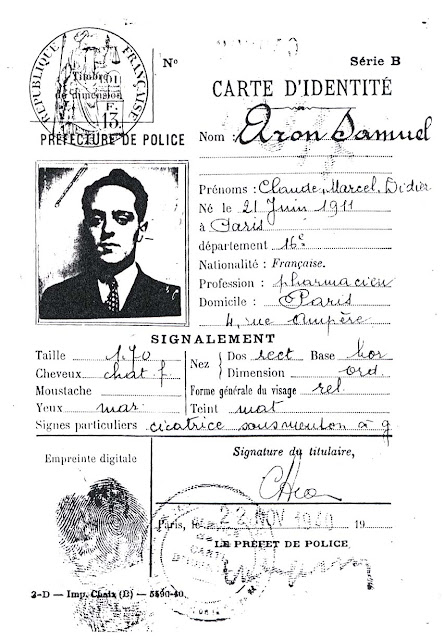 RÉPUBLIQUE FRANÇAISE
Timbre
de dimension
F.
13
PRÉFECTURE DE POLICE
N° Série B
CARTE D'IDENTITÉ
Nom : Aron Samuel
Prénoms : Claude, Marcel, Didier
Né le 21 Juin 1911
à Paris
département 16e
Nationalité : Française.
Profession : pharmacien
Domicile : Paris
4, rue Ampère
SIGNALEMENT
Taille 1.70
Cheveux chat. f.
Moustache
Yeux mar.
Nez { Dos rect Base hor
Dimension ord.
Forme générale du visage rel.
Teint mat
Signes particuliers cicatrice sous menton à g
Empreinte digitale
Signature du titulaire,
Paris, le 22 NOV 1940 19
LE PRÉFET DE POLICE
3-D — Imp. Chaix (B) — 5590-40.